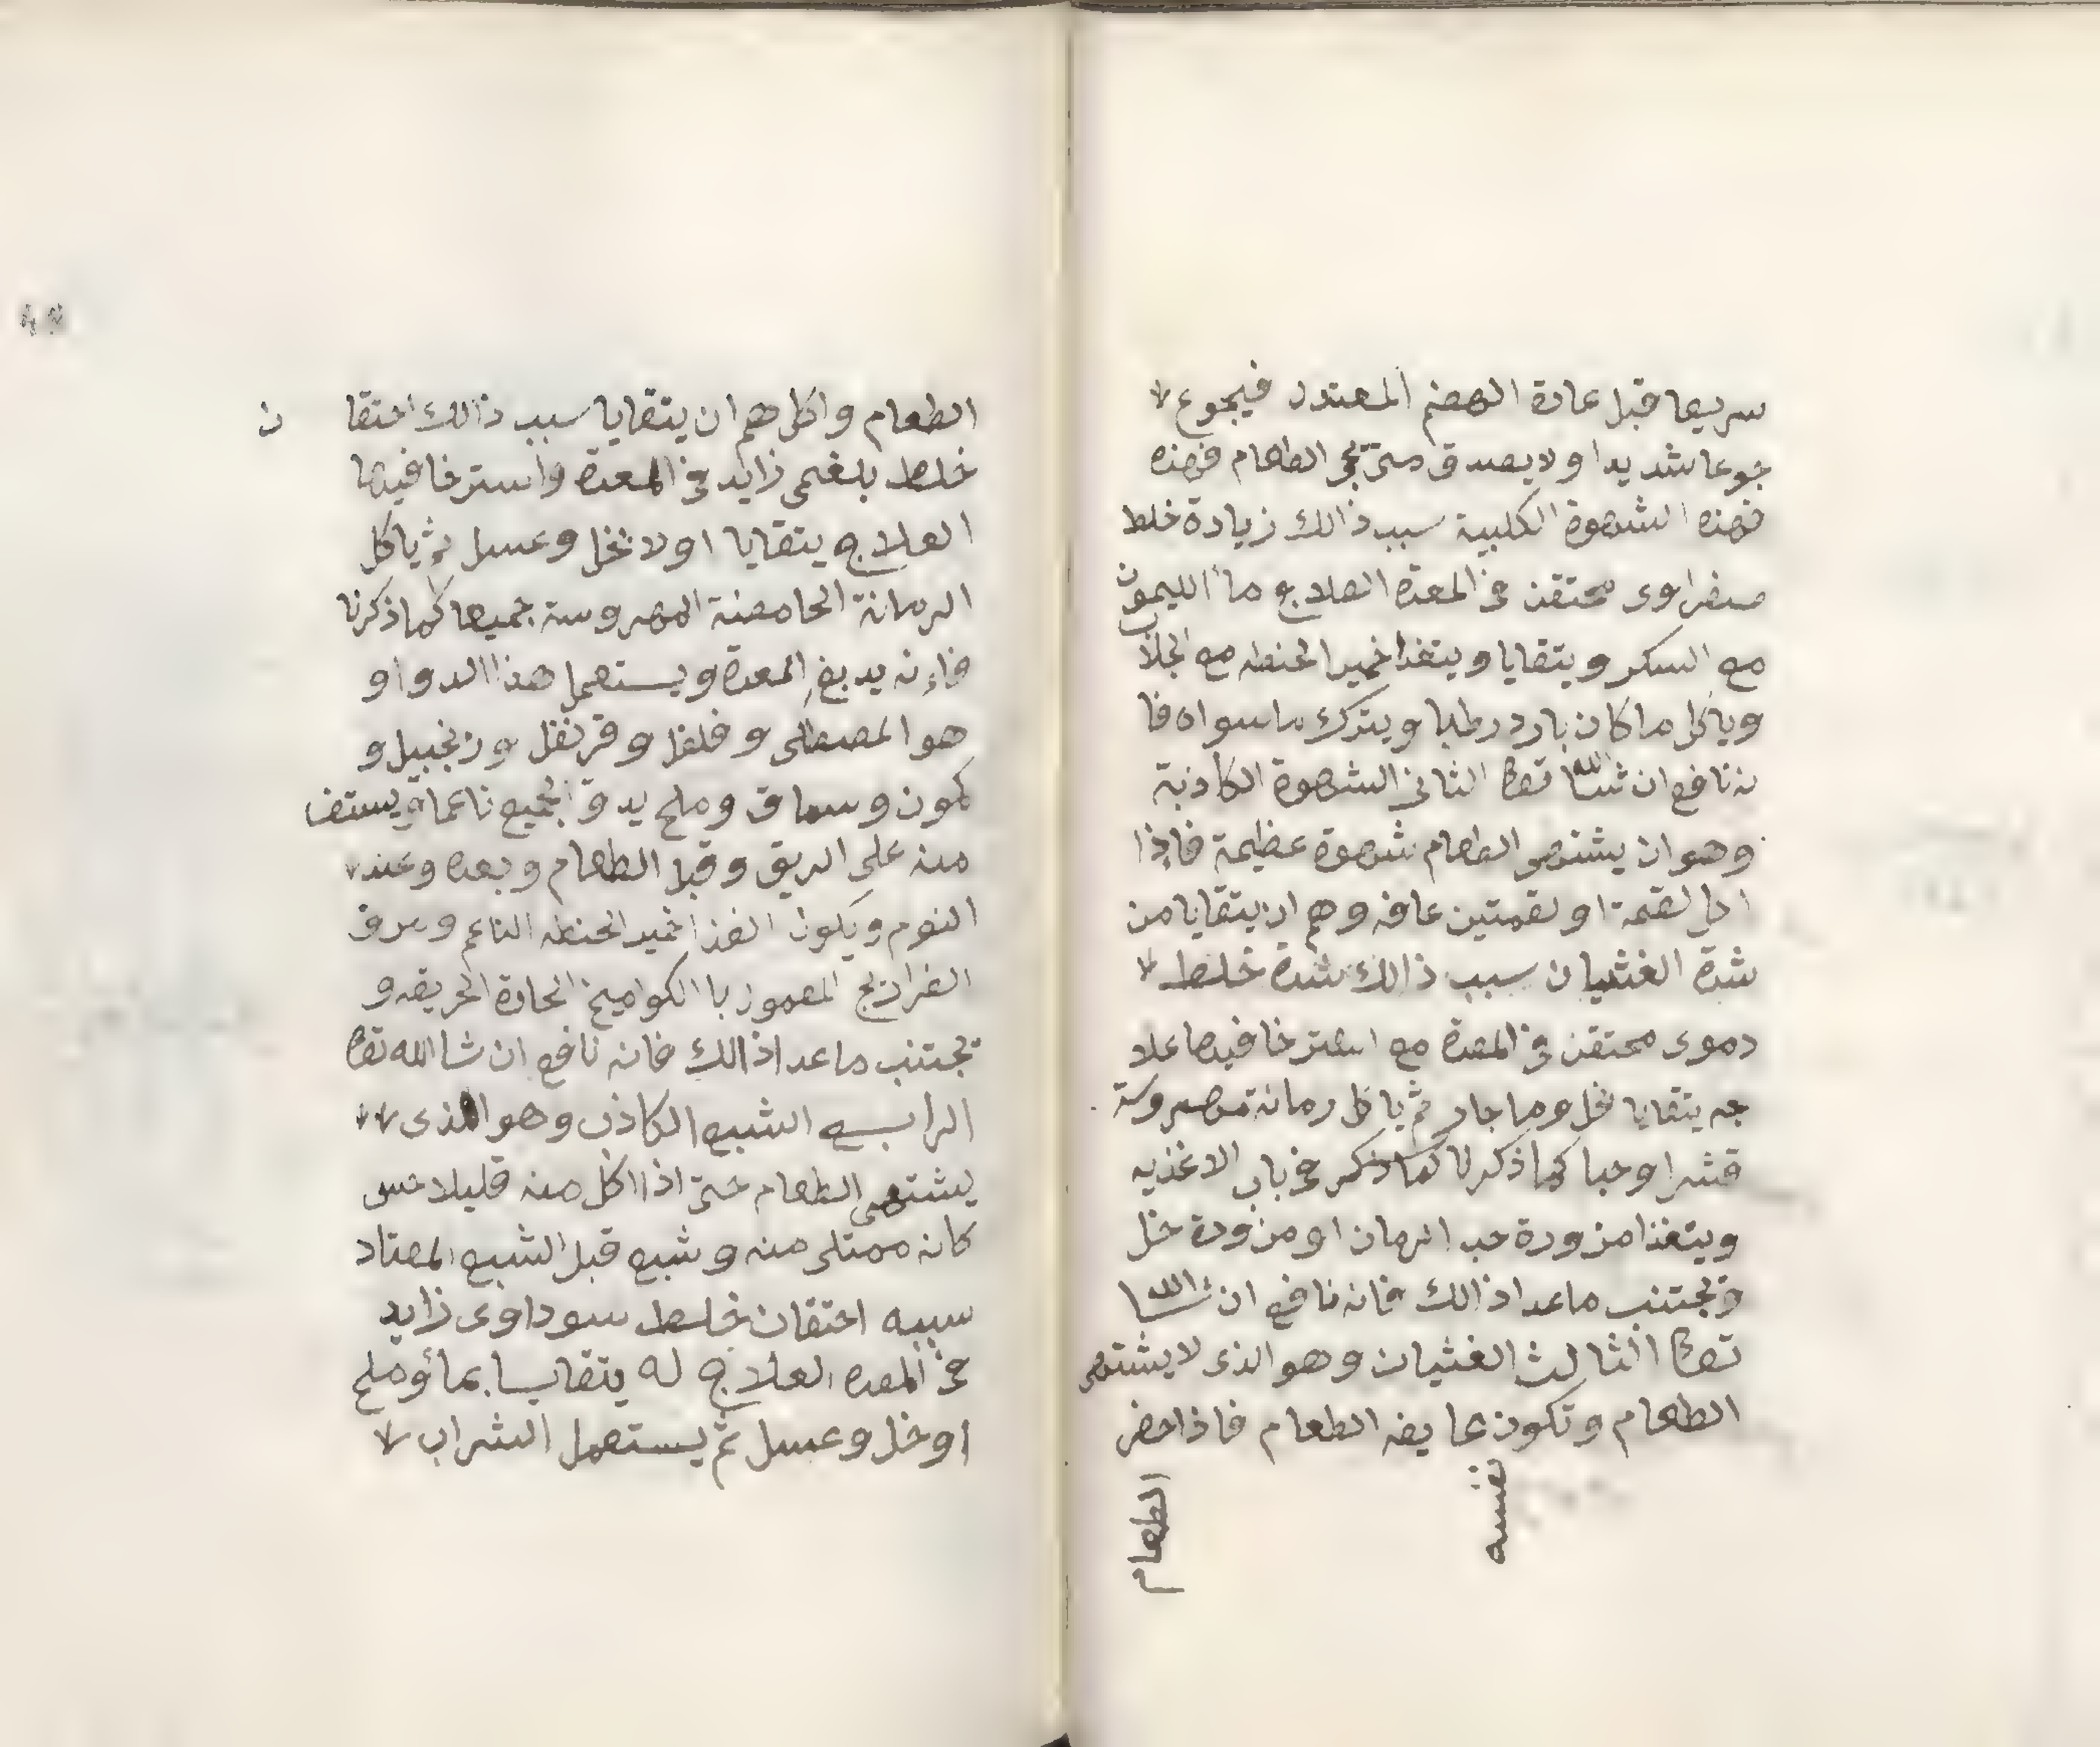 سريعا قبل عادة الهضم المعتدل فيجوع
جوعا شديدا ولا يصدق متى يجى الطعام فهذه
فهذه الشهوة الكلبية سبب ذالك زيادة خلط
صفراوى محتقن فى المعدة العلاج ماء الليمون
مع السكر ويتقايا ويتغذا خمير الحنطه مع الجلاب
وياكل ما كان بارد رطبا ويترك ما سواه فا
نه نافع ان شا الله تعالى الثانى الشهوة الكاذبة
وهو ان يشتهى الطعام شهوة عظيمة فإذا
اكل لقمة او لقمتين عافه وهم ان يتقايا من
شدة الغثيان سبب ذالك شدة خلط
دموى محتقن فى المعدة مع استرخا فيها علا
جه يتقايا بخل وما حار ثم ياكل رمانة مهروسة
قشرا وحبا كما ذكرنا كما ذكر فى باب الاغذيه
ويتغذا مزورة حب الرمان او مزورة خل
وتجتنب ماعدا ذالك فانه نافع ان شا الله
تعالى الثالث الغثيان وهو الذى لا يشتهى
الطعام وتكون عايفه الطعام فاذا حضر
نفسه
الطعام
الطعام واكل هم ان يتقايا سبب ذالك احتقا ن
خلط بلغمى زايد فى المعدة واسترخا فيها
العلاج يتقايا اولا بخل وعسل ثم ياكل
الرمانة الحامضة المهروسة جميعها كما ذكرنا
فاءنه يدبغ المعدة ويستعمل هذا الدوا و
هو المصطكى وفلفل وقرنفل وزنجبيل و
كمون وسماق وملح يدق الجميع ناعما ويستف
منه على الريق وقبل الطعام وبعده وعند
النوم ويكون الغذا خمير الحنطه الناعم ومرق
الفراريج المعمول باالكواميخ الحادة الحريفه و
تجتنب ماعدا ذالك فانه نافع ان شا الله تعالى
الرابع الشبع الكاذب وهو الذى
يشتهى الطعام حتى اذا اكل منه قليلا حس
كانه ممتلى منه وشبع قبل الشبع المعتاد
سببه احتقان خلط سوداوى زايد
فى المعده العلاج له يتقايا بماء وملح
او خل وعسل ثم يستعمل الشراب